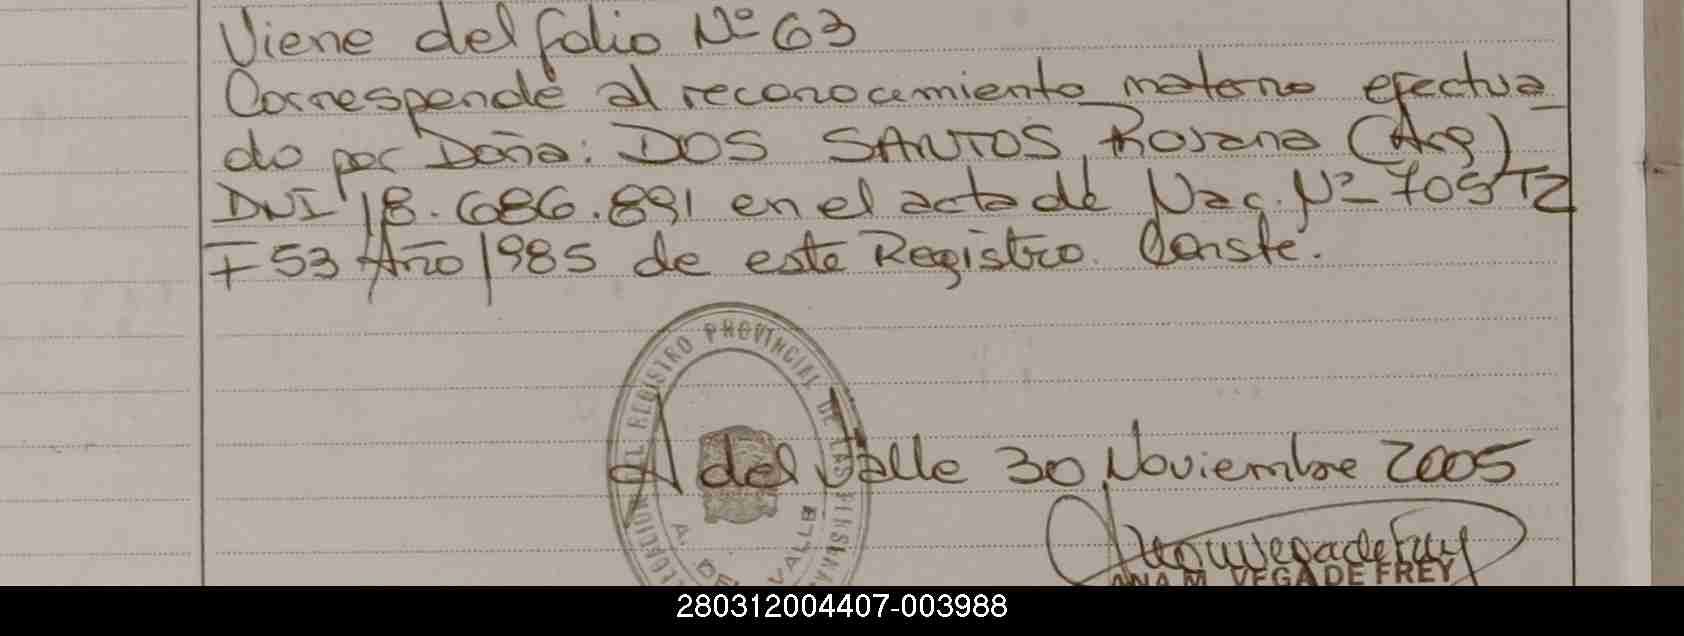 Viene del folio Nº 63
Corresponde al reconocimiento materno efectua
do por Doña: DOS SANTOS, Rosana (Arg)
DNI 18.686.891 en el acta de Nac. Nº 705 T2
F 53 Año 1985 de este Registro. Conste.
REGISTRO PROVINCIAL DE LAS PERSONAS
A. DEL VALLE
A del Valle 30 Noviembre 2005
ANA M. VEGA DE FREY
280312004407-003988